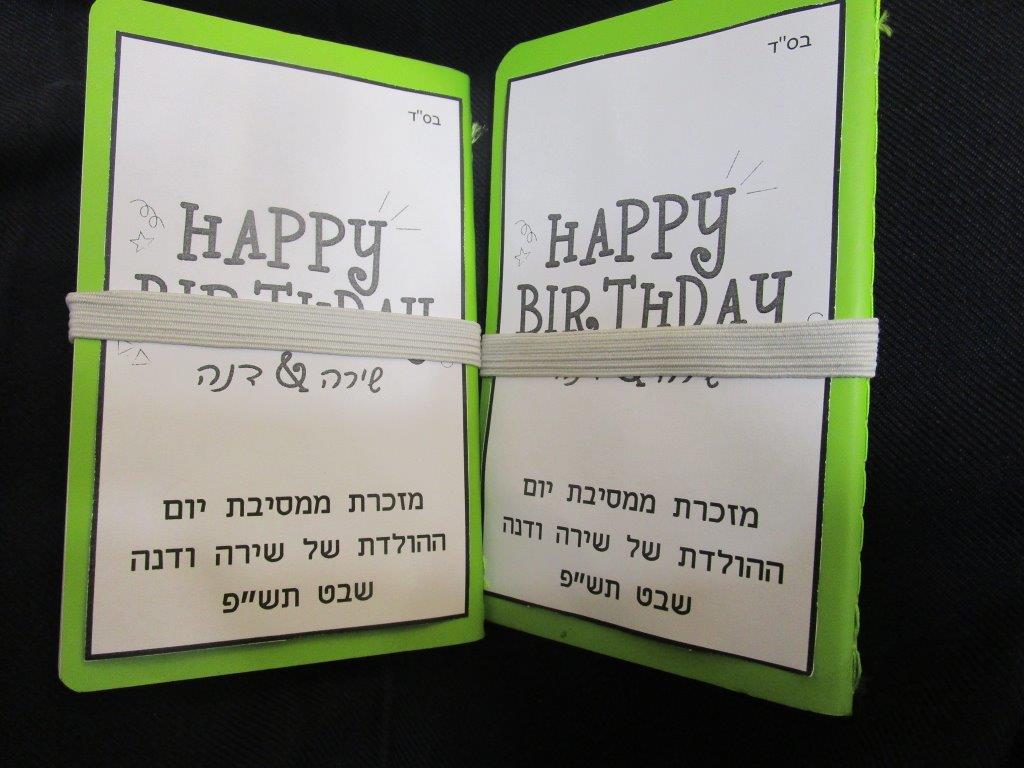 בס"ד
HAPPY
BIRTHDAY
שירה & דנה
מזכרת ממסיבת יום
ההולדת של שירה ודנה
שבט תש"פ
בס"ד
HAPPY
BIRTHDAY
שירה & דנה
מזכרת ממסיבת יום
ההולדת של שירה ודנה
שבט תש"פ